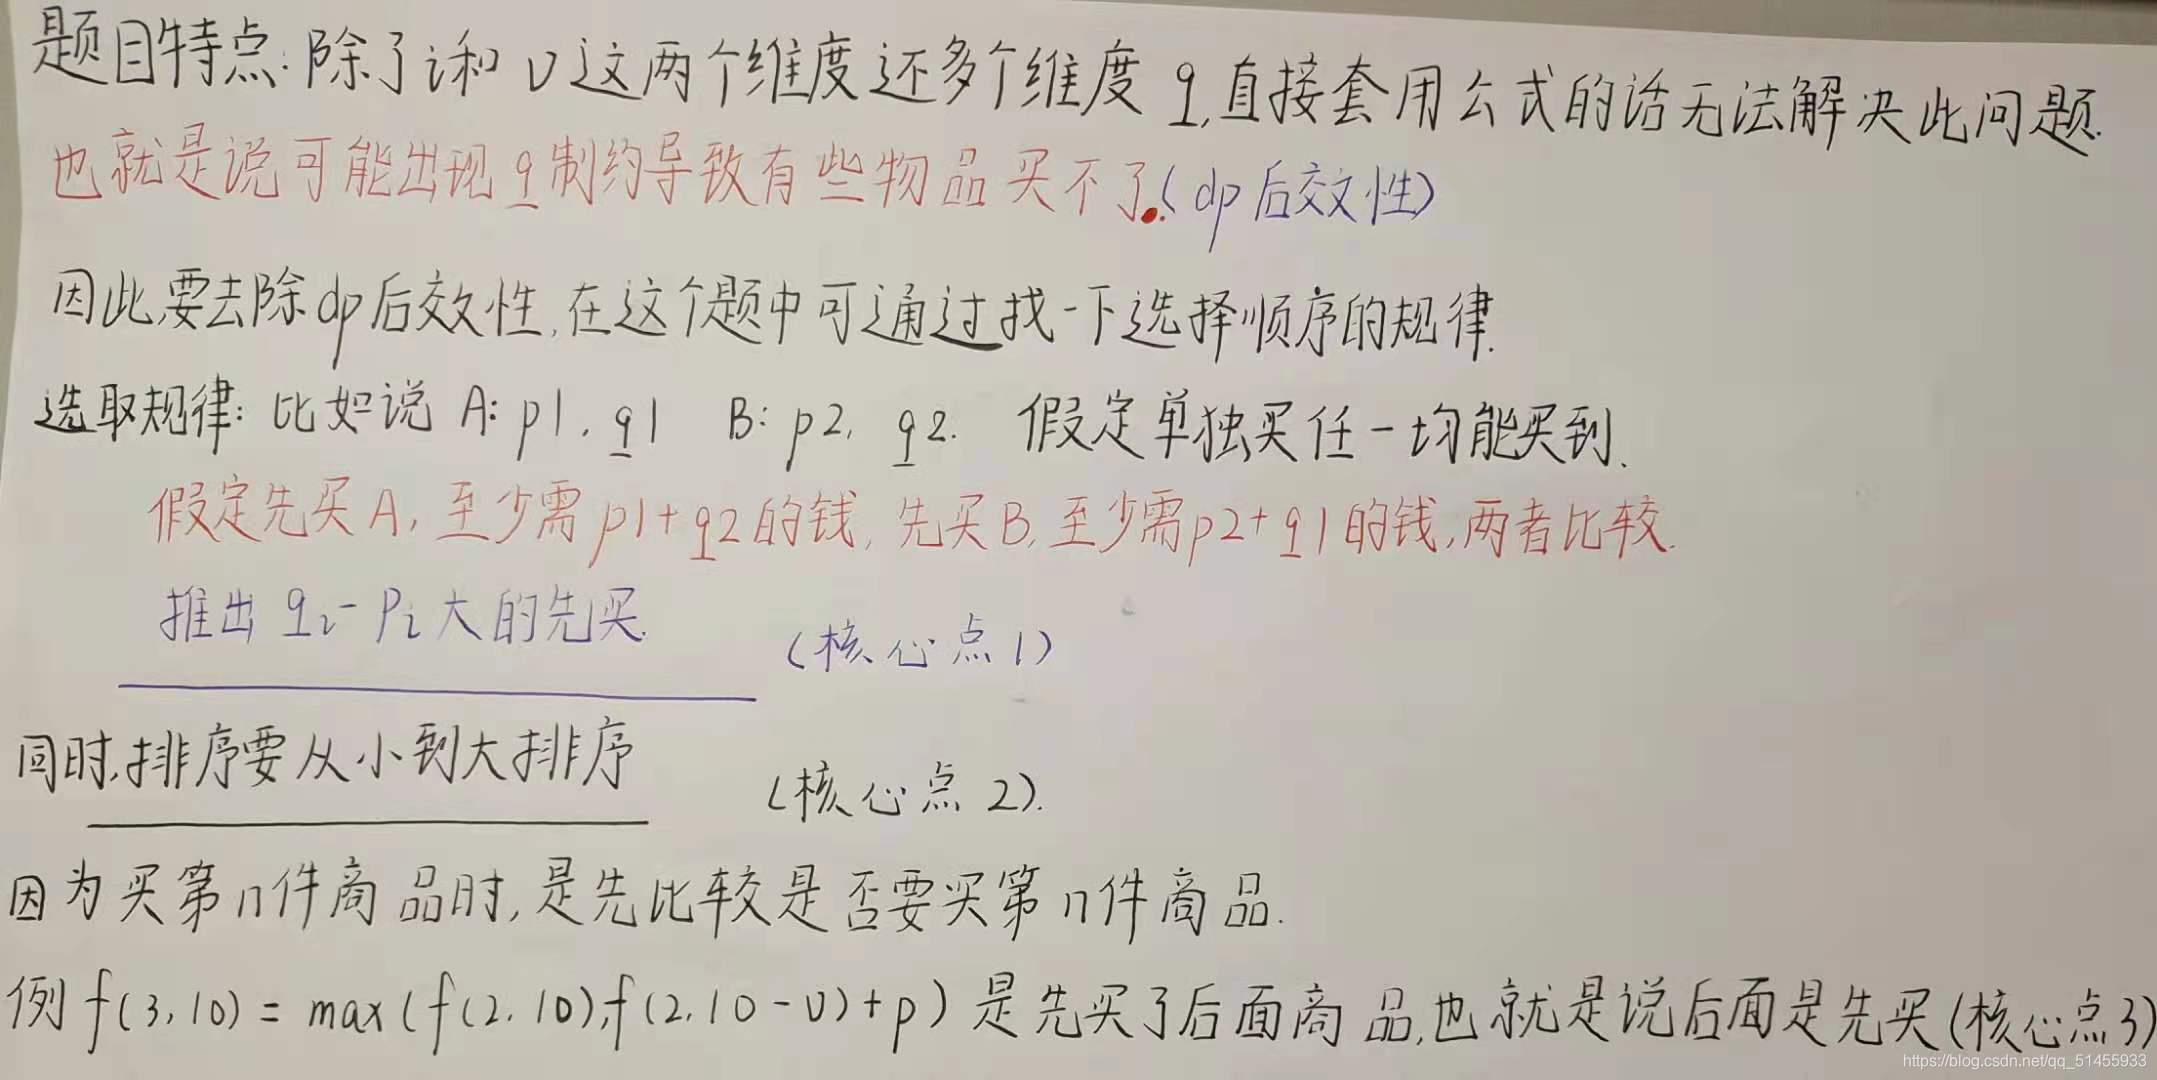 题目特点:除了i和v这两个维度还多个维度q,直接套用公式的话无法解决此问题.
也就是说可能出现q制约导致有些物品买不了.(dp后效性)
因此,要去除dp后效性,在这个题中可通过找一下选择顺序的规律.
选取规律:比如说 A:p1,q1 B:p2,q2. 假定单独买任一均能买到.
假定先买A,至少需p1+q2的钱,先买B,至少需p2+q1的钱,两者比较.
推出qi-Pi大的先买. (核心点1)
同时,排序要从小到大排序 (核心点2).
因为买第n件商品时,是先比较是否要买第n件商品.
例f(3,10)=max(f(2,10),f(2,10-v)+p)是先买了后面商品,也就是说后面是先买(核心点3)
https://blog.csdn.net/qq_51455933